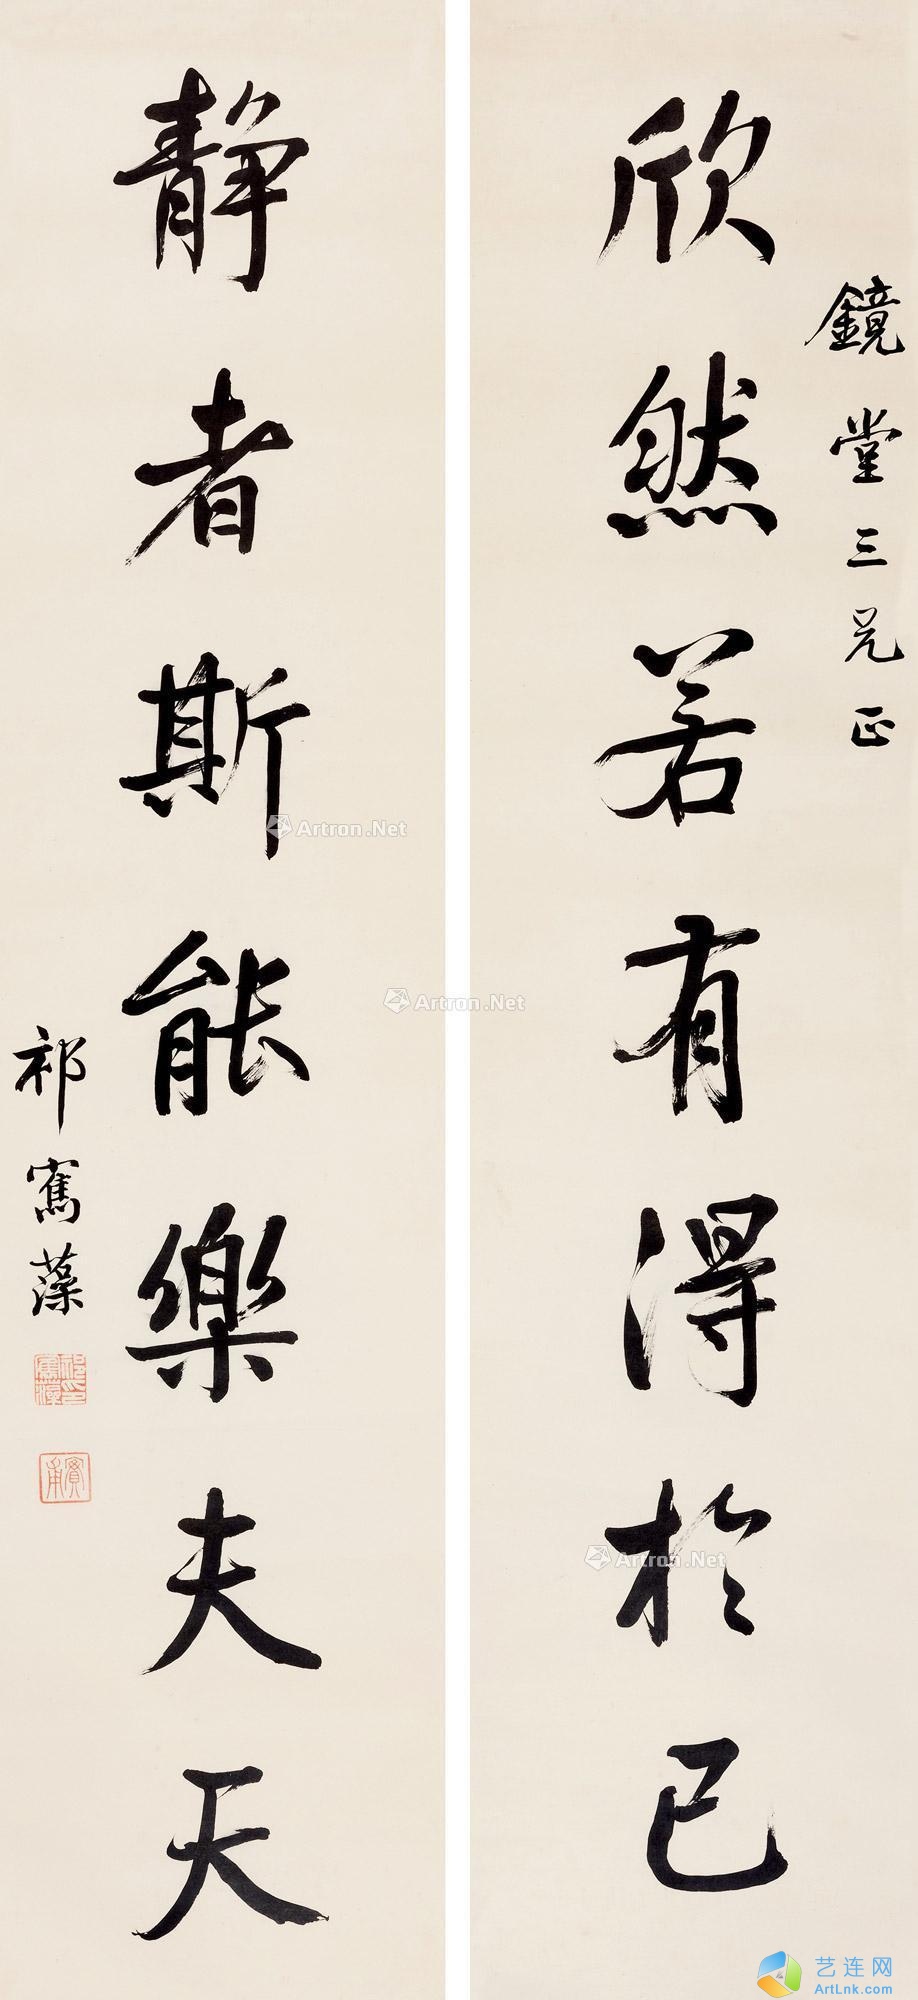 鏡堂三兄正
欣然若有得於己
靜者斯能樂夫天
祁寯藻
祁寯藻印
實甫
Artron.Net
Artron.Net
Artron.Net
艺连网
ArtLnk.com